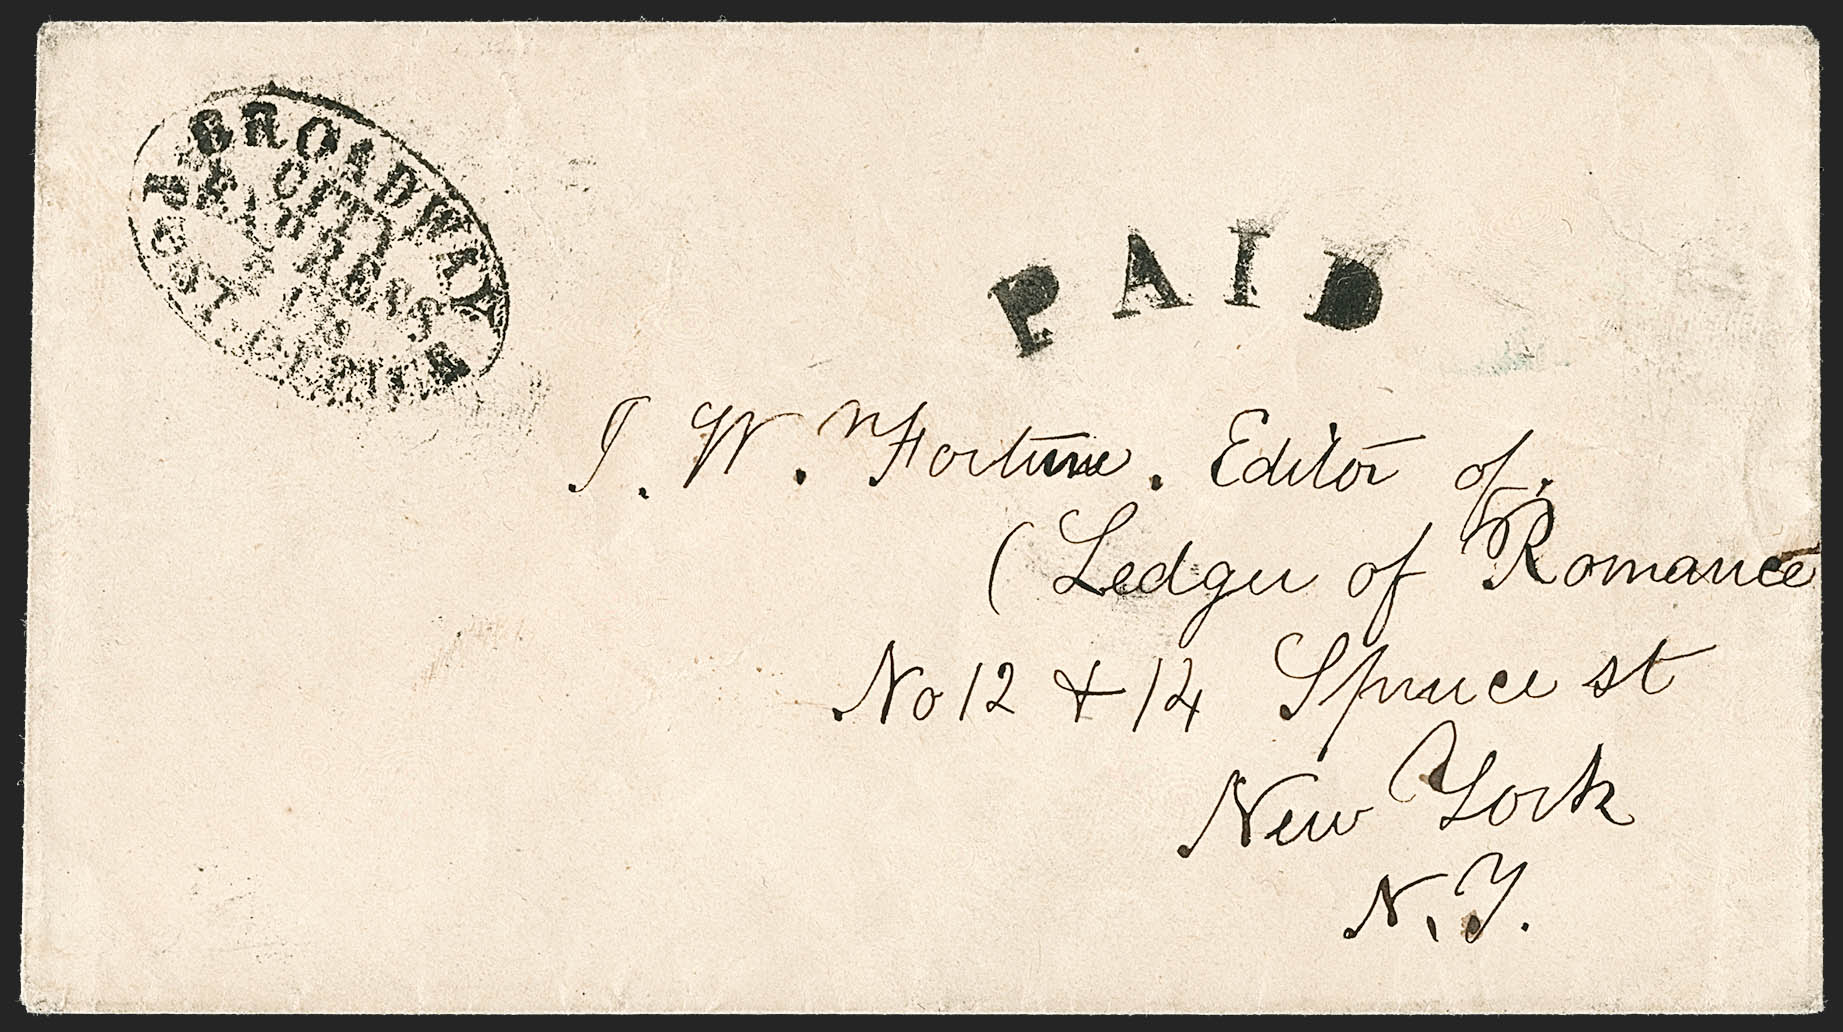 BROADWAY
CITY
EXPRESS
POST-OFFICE
PAID
T. W. Fortune. Editor of.
(Ledger of Romance
No 12 & 14 Spruce st
New York
N.Y.